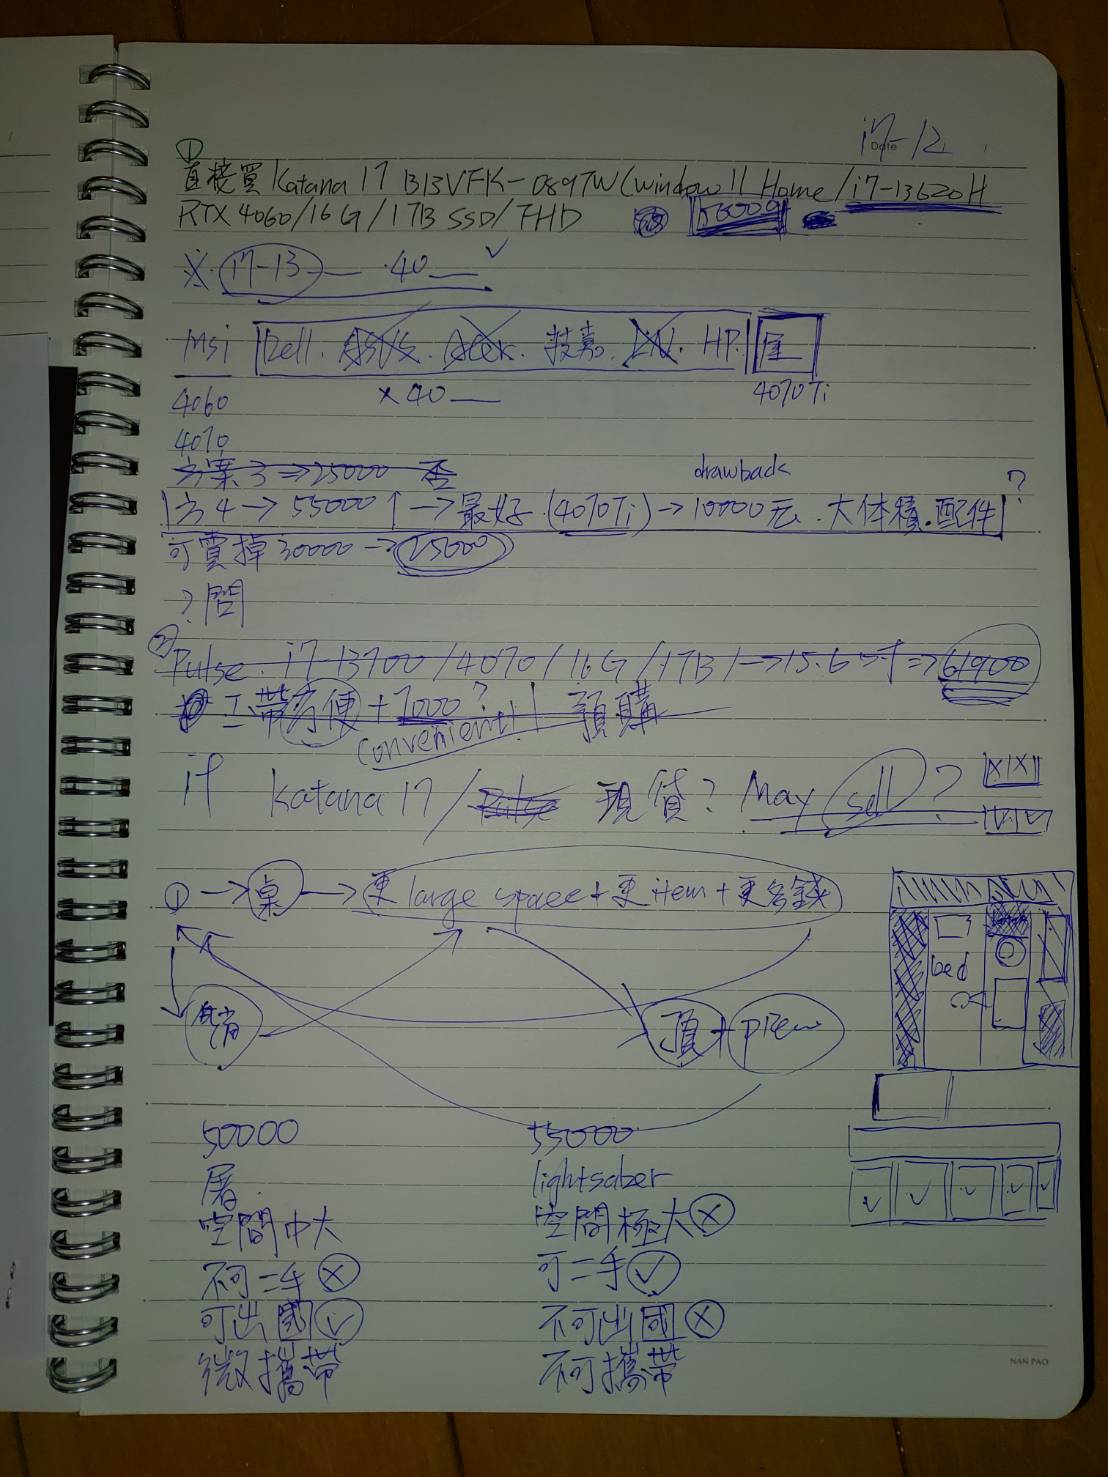 i7-12
Date
①
直接買 Katana 17 B13VFK-0897TW (window 11 Home / i7-13620H
RTX 4060/16G/1TB SSD/FHD 56000
※ i7-13— 40— ✓
Msi Dell. ASUS. Acer. 技嘉. HP.
4060 ×40— 4070Ti
4070
方案3⇒25000 否
drawback
方4→55000↑→最好(4070Ti)→10000元.大体積.配件 ?
可賣掉30000→25000
?問
②
Pulse. i7 13700/4070/16G/1TB/→15.6吋⇒61900
工帶方便+1000? 預購
convenient!
if Katana 17/Pulse 現貨? May sell?
①→桌→更large space+更item+更多錢
bed
頂+
50000 55000
屠 lightsaber
空間中大 空間極大ⓧ
不可二手ⓧ 可二手✓
可出國✓ 不可出國ⓧ
微攜帶 不可攜帶
NAN PAO